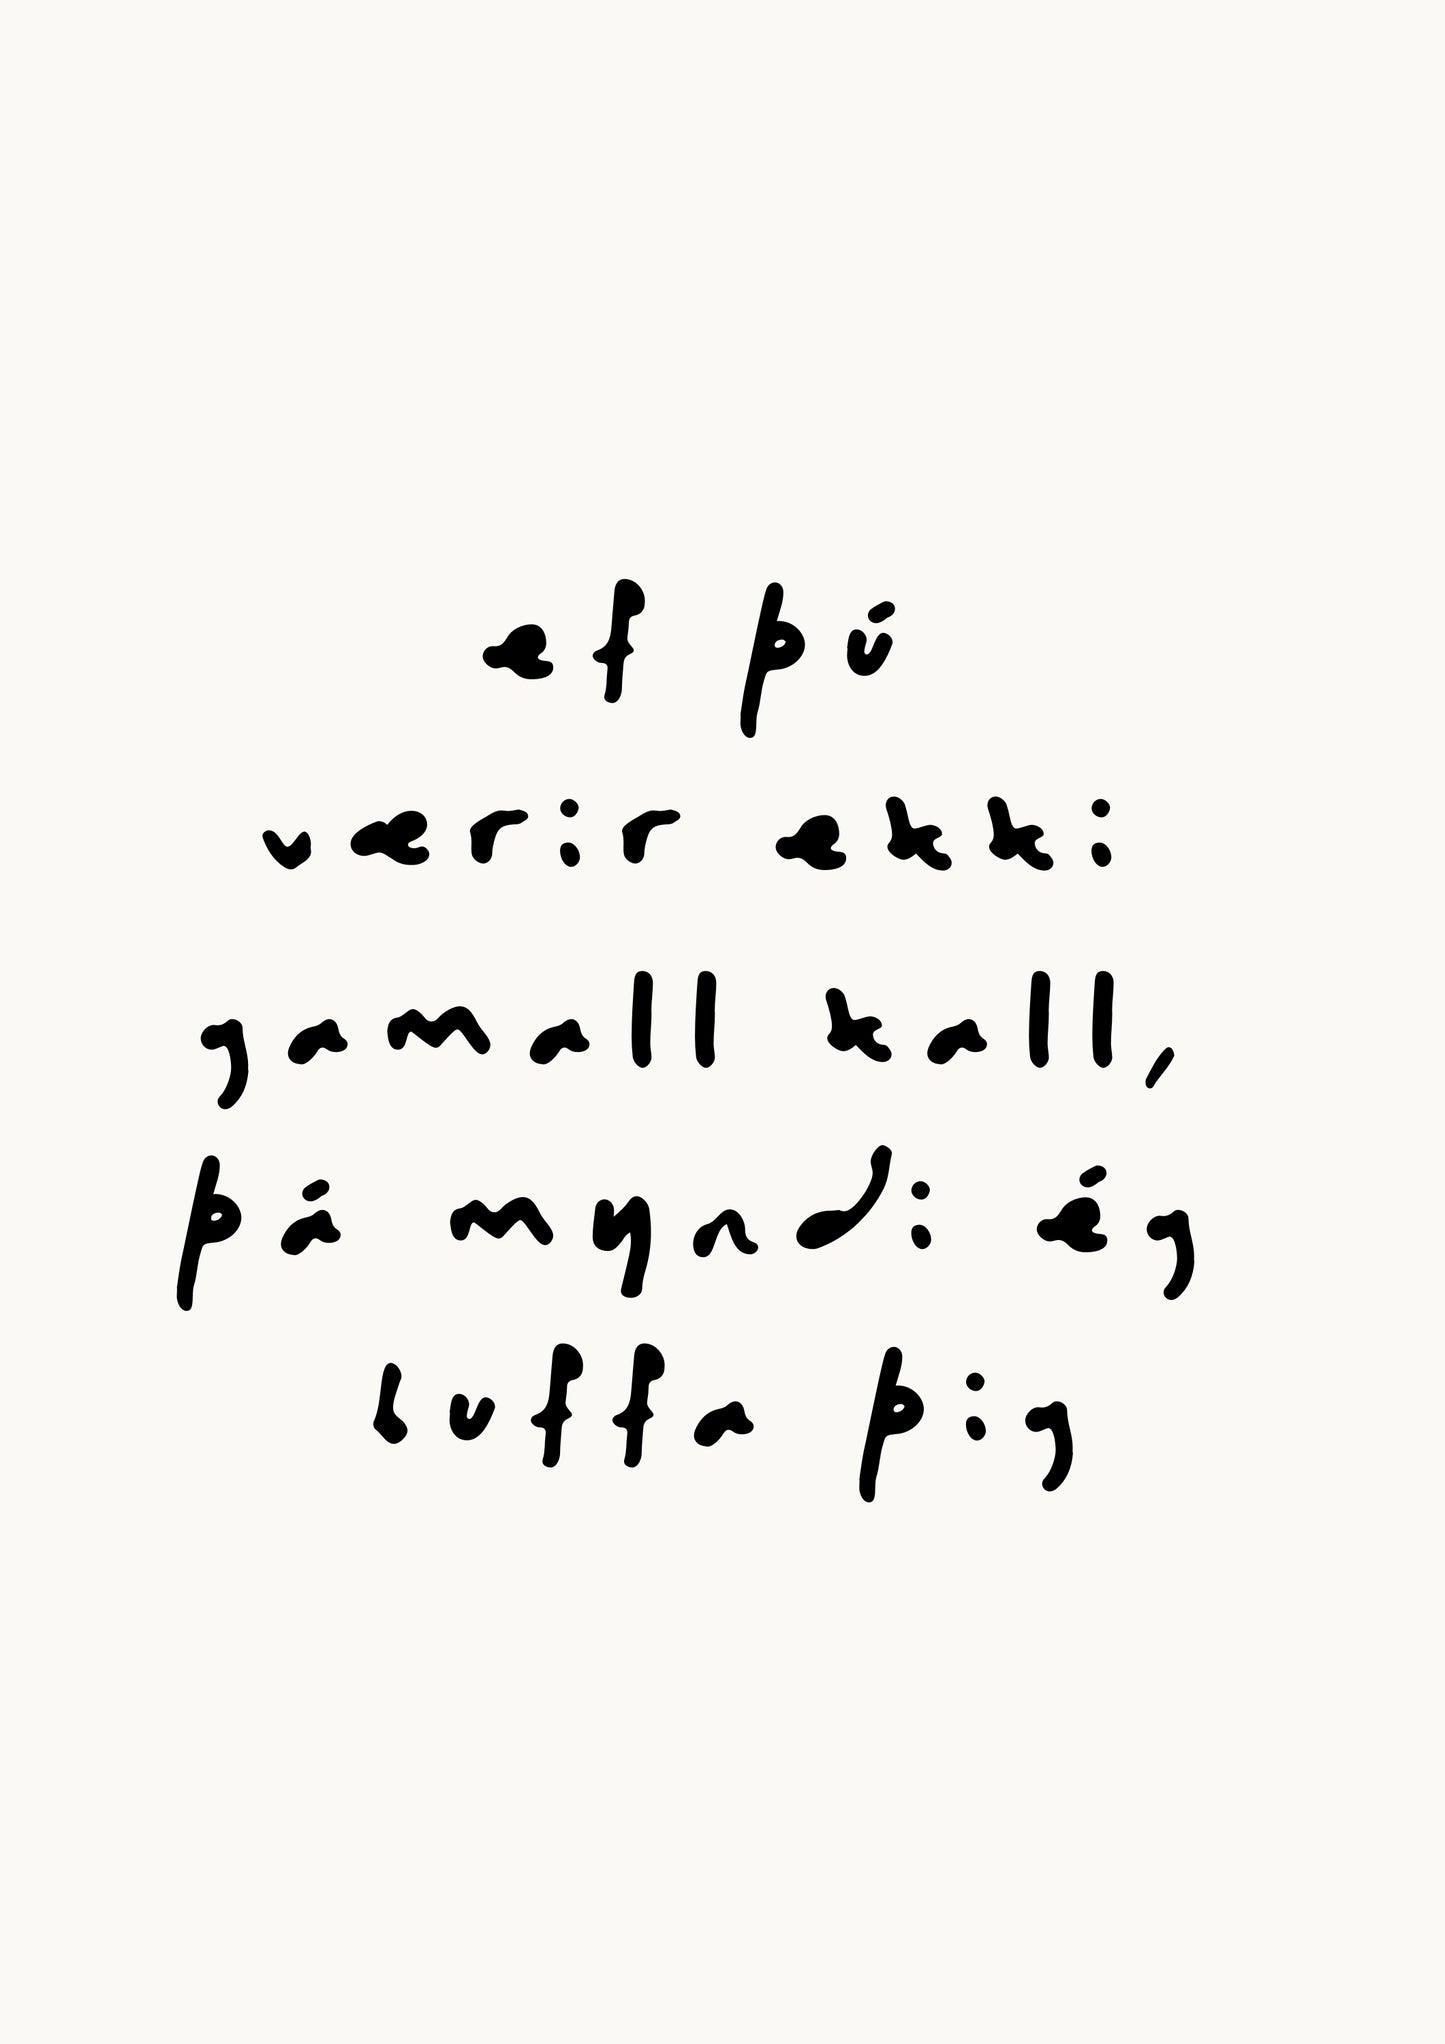 ef þú
værir ekki
gamall kall,
þá myndi ég
buffa þig